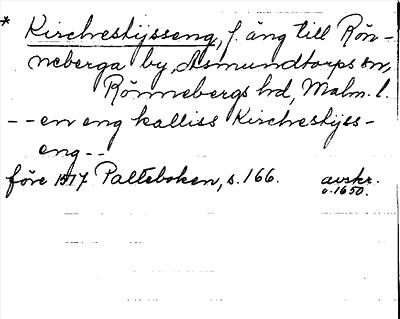 * Kircheskysseng, f. äng till Rön-
neberga by, Asmundtorps sn,
Rönnebergs hd, Malm. l.
-- en eng kalliss Kircheskyss-
eng --
före 1517 Palteboken, s. 166. avskr.
o. 1650.